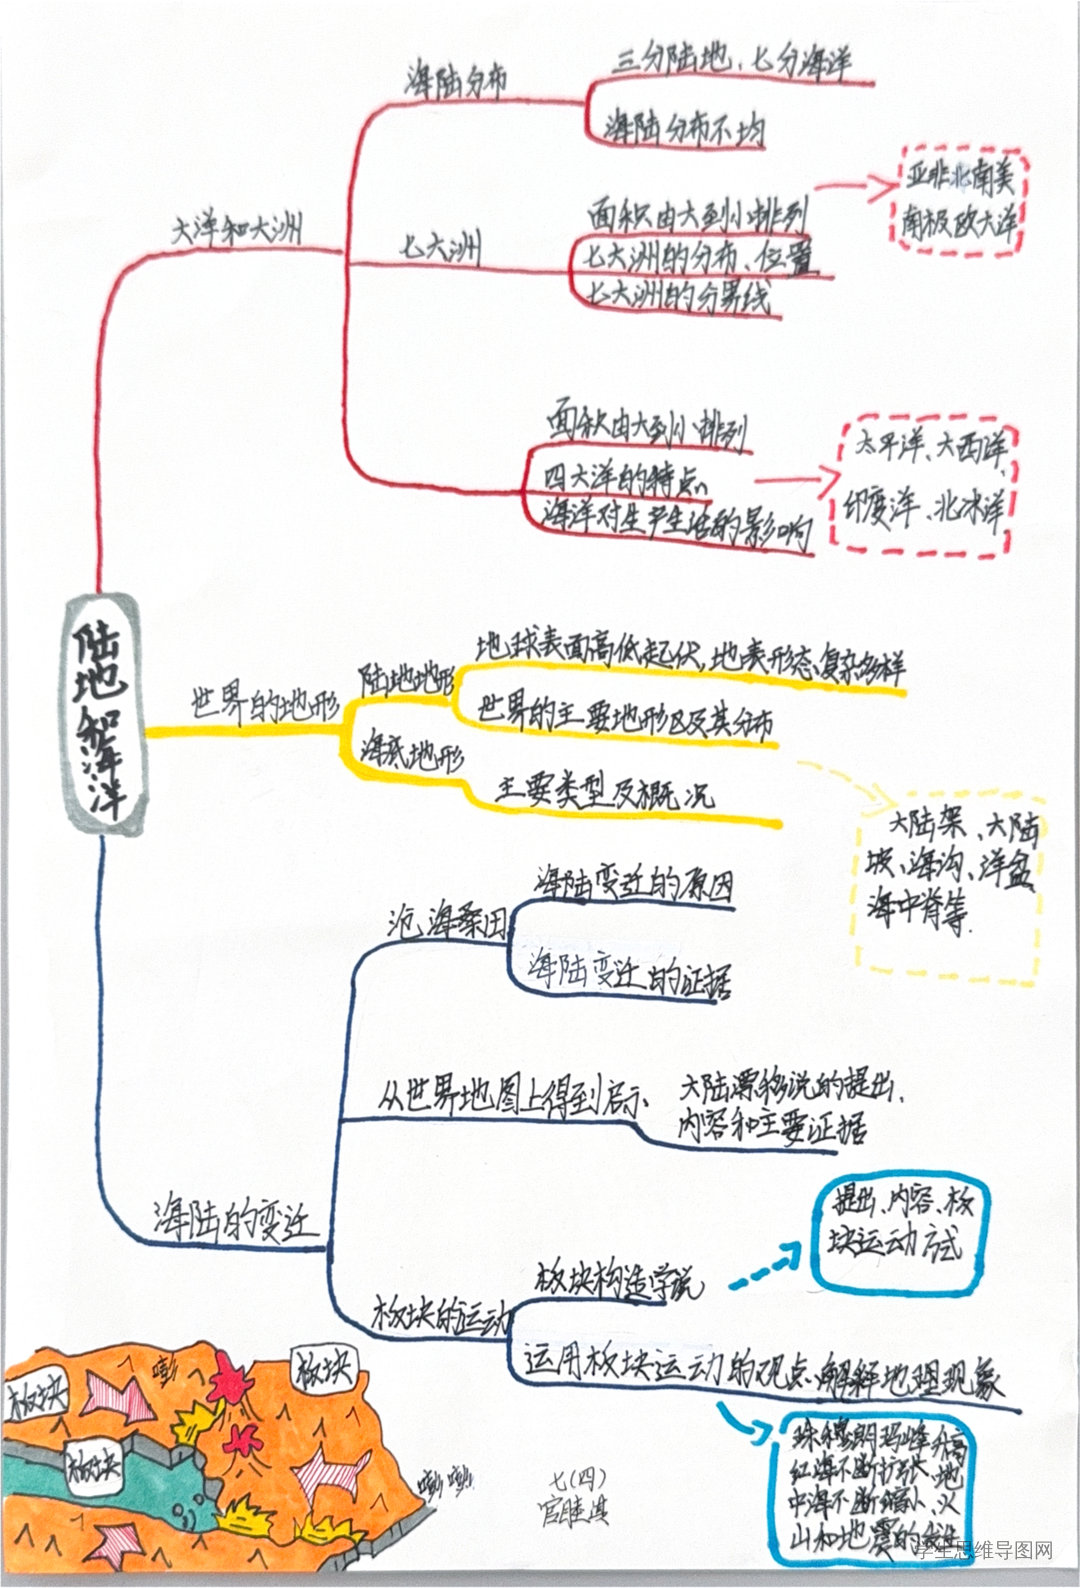 三分陆地、七分海洋
海陆分布
海陆分布不均
亚非北南美
南极欧大洋
面积由大到小排列
大洋和大洲
七大洲
七大洲的分布、位置
七大洲的分界线
面积由大到小排列
太平洋、大西洋、
四大洋的特点
印度洋、北冰洋
海洋对生产生活的影响
陆地和海洋
地球表面高低起伏,地表形态复杂多样
陆地地形
世界的地形
世界的主要地形区及其分布
海底地形
主要类型及概况
大陆架、大陆
坡、海沟、洋盆
海中脊等.
海陆变迁的原因
沧海桑田
海陆变迁的证据
从世界地图上得到启示
大陆漂移说的提出、
内容和主要证据
海陆的变迁
提出、内容、板
块运动方式
板块构造学说
板块的运动
运用板块运动的观点解释地理现象
珠穆朗玛峰升高
红海不断扩张、地
中海不断缩小、火
山和地震的发生
板块
嘭
板块
板块
嘭嘭
七(四)
官睦淇
学生思维导图网